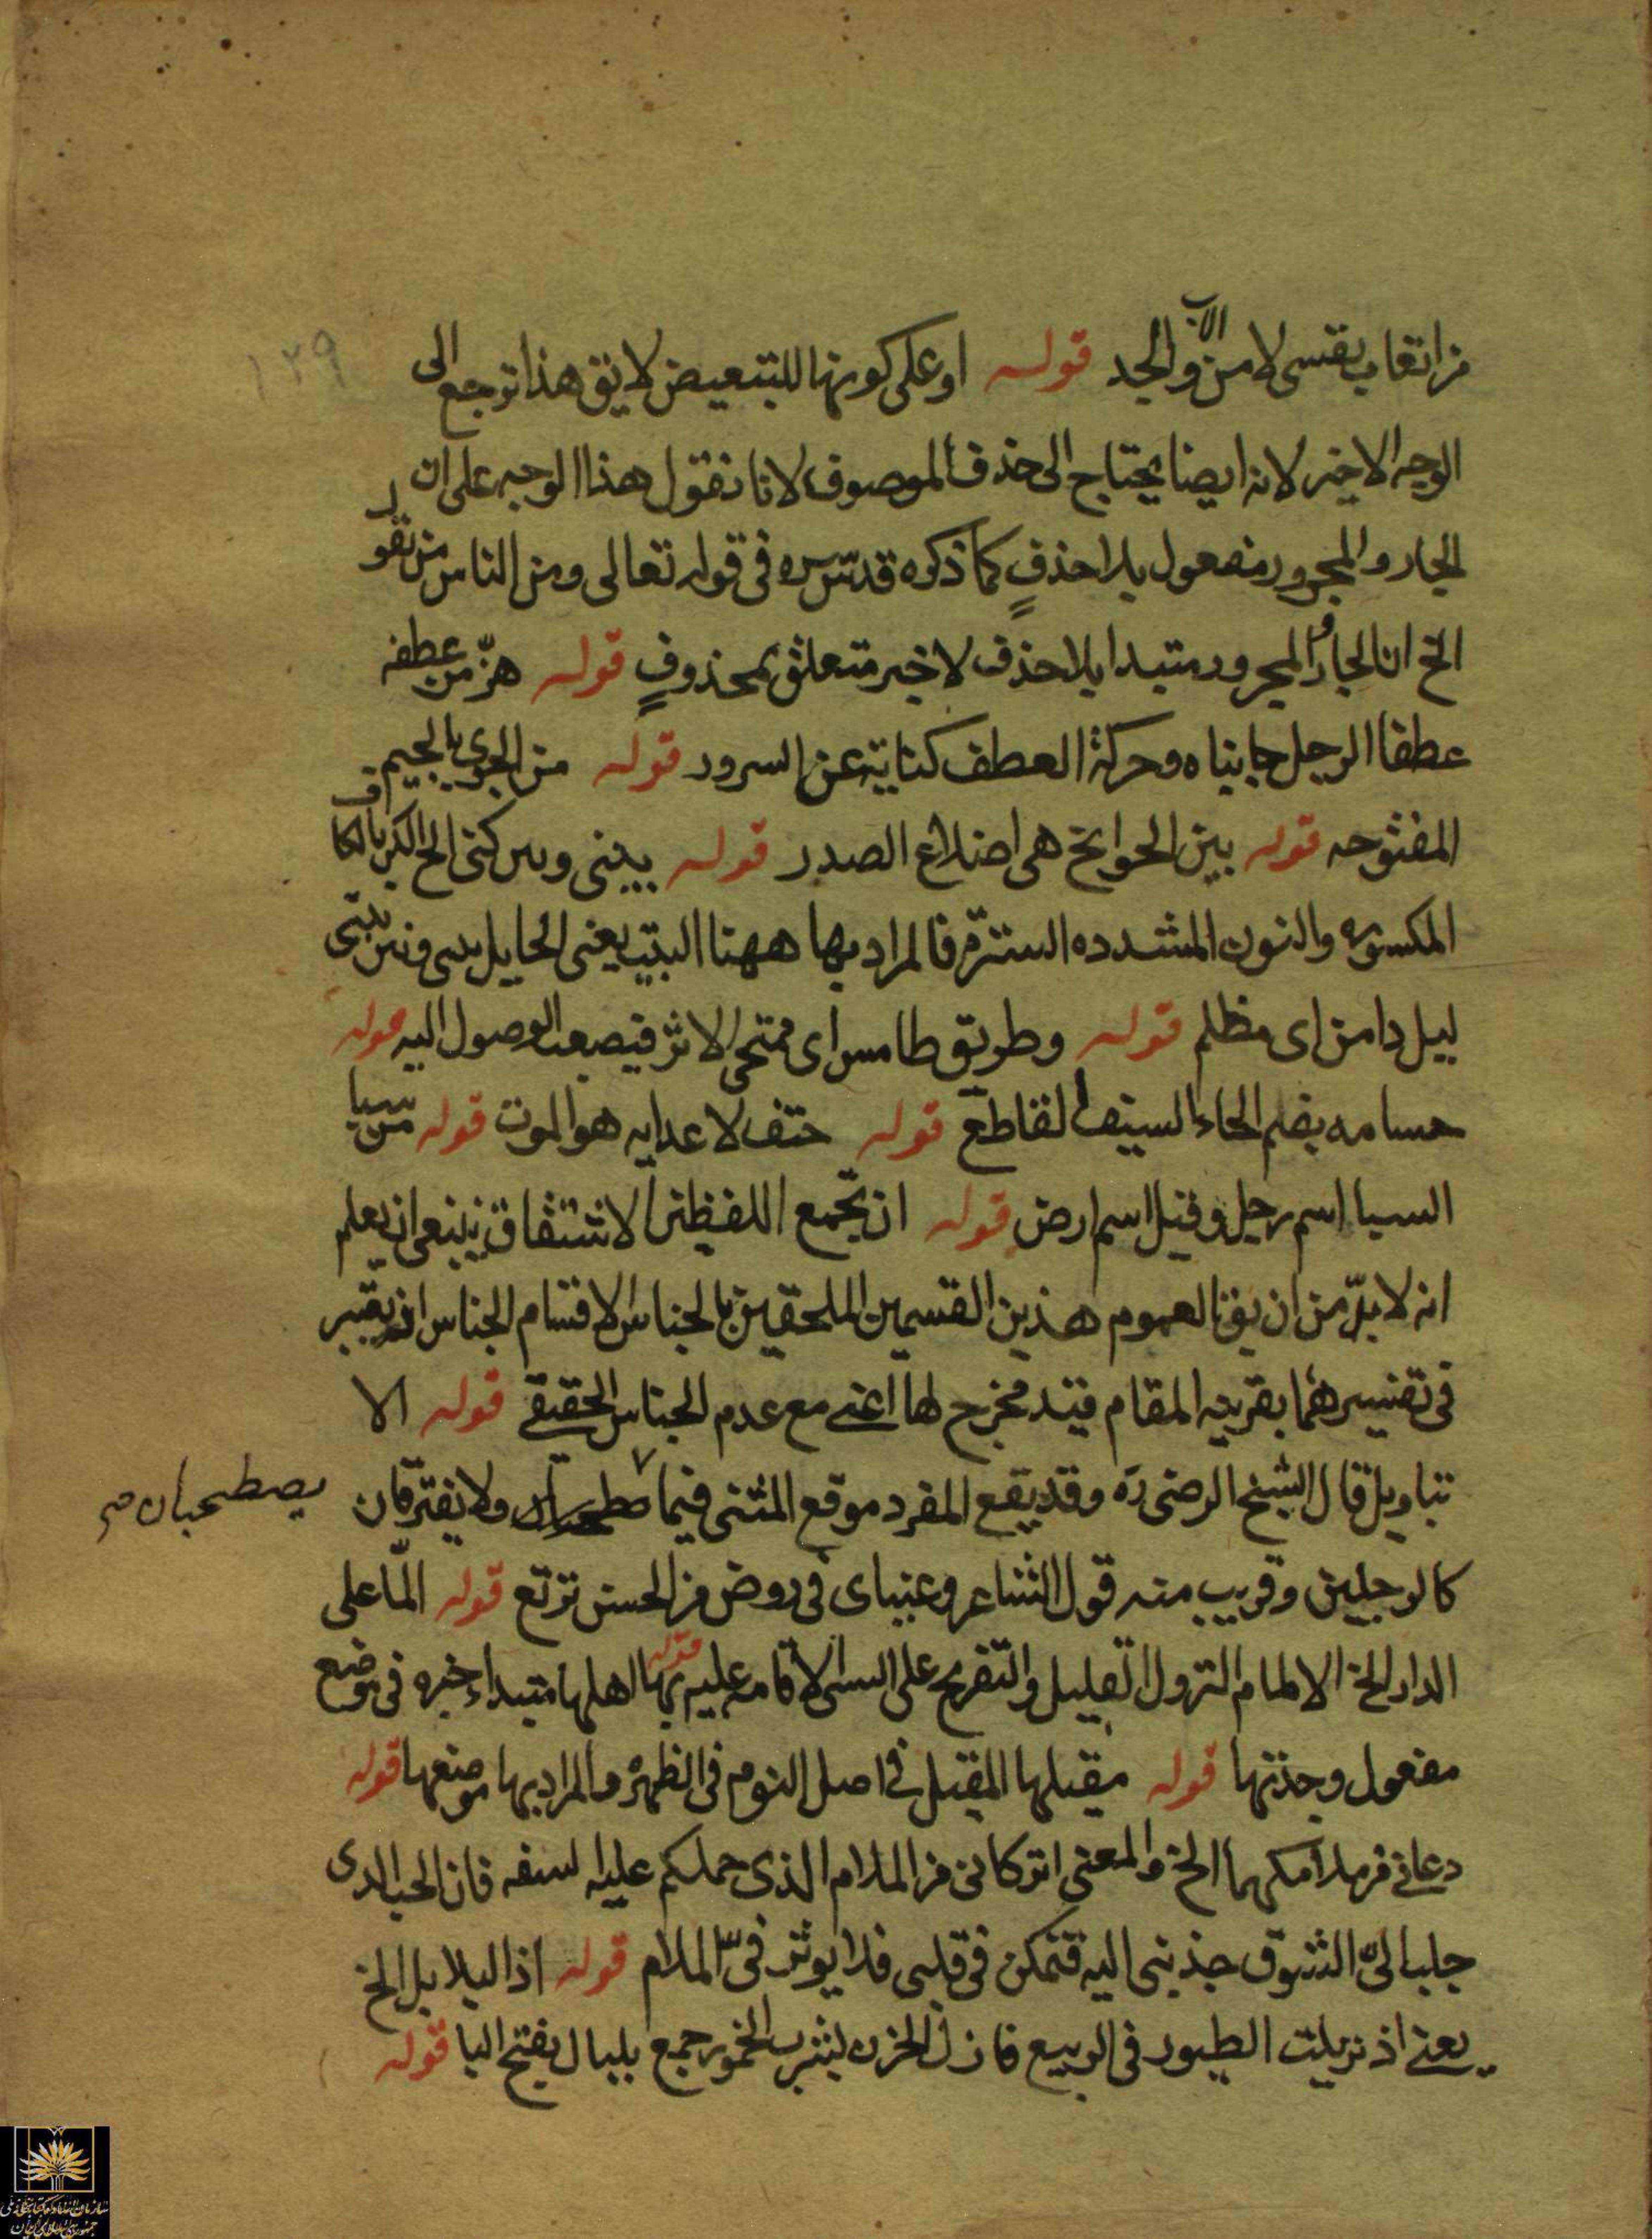 من اتعاب نفسی لا من الاب والجد قوله او علی کونها للتبعیض لایق هذا ترجع الی
الوجه الاخیر لانه ایضا یحتاج الی حذف الموصوف لانا نقول هذا الوجه علی ان
الجار والمجرور مفعول بلا حذفٍ کما ذکره قدّس سره فی قوله تعالی ومن الناس من یقول
الخ ان الجار والمجرور مبتدا بلا حذف لا خبر متعلق بمحذوفٍ قوله هزّ من عطفه
عطفا الرجل جانباه وحرکة العطف کنایة عن السرور قوله من الجوی بالجیم
المفتوحه قوله بین الجوانح هی اضلاع الصدر قوله بینی وبین کنی الخ الکن بالکاف
المکسوره والنون المشدده الستر فالمراد بها ههنا البیت یعنی الحایل بینی وبین بیتی
لیل دامن ای مظلم قوله وطریق طامس ای ممتحی الاثر فیصعب الوصول الیه قوله
حسامه بضم الحاء السیف القاطع قوله حتف لاعدایه هو الموت قوله من سبا
السبا اسم رجل وقیل اسم ارض قوله ان تجمع اللفظین الاشتقاق ینبغی ان یعلم
انه لا بدّ من ان یق العموم هذین القسمین الملحقین بالجناس لاقسام الجناس انه یعتبر
فی تفسیرهما بقرینه المقام قید مخرج لها اعنی مع عدم الجناس الحقیقی قوله الا
بتاویل قال الشیخ الرضی ره وقد یقع المفرد موقع المثنی فیما ولا یفترقان
یصطحبان صح
کالرجلین وقریب منه قول الشاعر وعینای فی روض من الحسن ترتع قوله المّا علی
الدار الخ الالمام النزول القلیل والتعریج علی الشی الاقامه علیه قوله بها اهلها مبتداء خبره فی موضع
مفعول وجدتها قوله مقیلها المقیل فی اصل النوم فی الظهره والمراد بها موضعها قوله
دعانی من ملامکما الخ والمعنی اترکانی من الملام الذی حملکم علیه لسفه فان الحب الدی
جلب الیّ الشوق جذبنی الیه فتمکن فی قلبی فلا یوثر فیّ الملام قوله اذا البلابل الخ
یعنی اذ نزلت الطیور فی الربیع فازل الحزن بشرب الخمور جمع بلبال بفتح البا قوله
۱۲۹